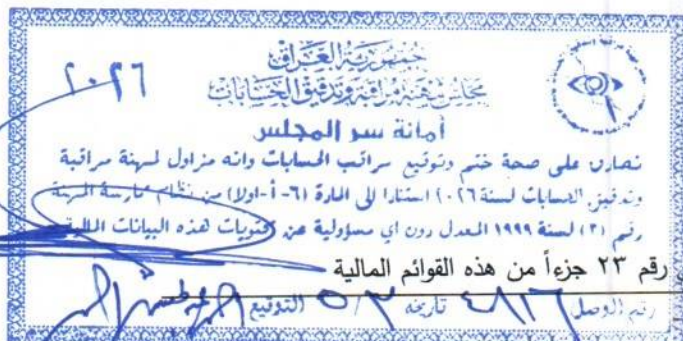 جمهورية العراق
مجلس مهنة مراقبة وتدقيق الحسابات
٢٠٢٦
أمانة سر المجلس
نصادق على صحة ختم وتوقيع مراقب الحسابات وانه مزاول لمهنة مراقبة
وتدقيق الحسابات لسنة ٢٠٢٦) استنادا الى المادة (٦-أ-اولا) من نظام ممارسة المهنة
رقم (٣) لسنة ١٩٩٩ المعدل دون اي مسؤولية عن محتويات هذه البيانات المالية
رقم ٢٣ جزءاً من هذه القوائم المالية
رقم الوصل تاريخه ٥/٣ التوقيع